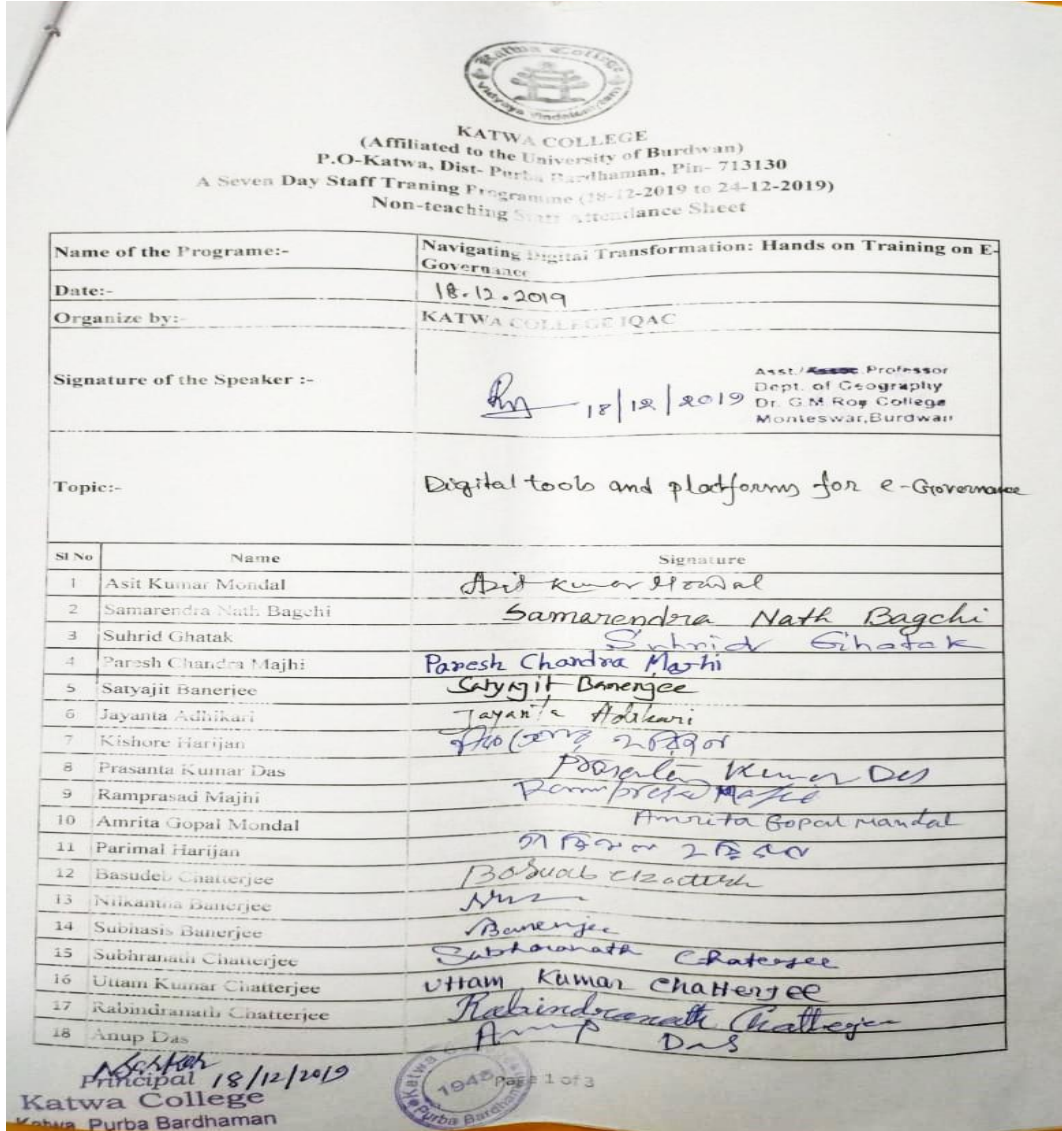 Katwa College
Vidyaya Vindatehmritam
KATWA COLLEGE
(Affiliated to the University of Burdwan)
P.O-Katwa, Dist- Purba Bardhaman, Pin- 713130
A Seven Day Staff Traning Programme (18-12-2019 to 24-12-2019)
Non-teaching Staff Attendance Sheet
Name of the Programe:- Navigating Digital Transformation: Hands on Training on E-
Governance
Date:- 18.12.2019
Organize by:- KATWA COLLEGE IQAC
Signature of the Speaker :- 18/12/2019
Asst./Assoc. Professor
Dept. of Geography
Dr. G.M Roy College
Monteswar,Burdwan
Topic:- Digital tools and platforms for e-Governance
Sl No Name Signature
1 Asit Kumar Mondal Asit Kumar Mondal
2 Samarendra Nath Bagchi Samarendra Nath Bagchi
3 Suhrid Ghatak Suhrid Ghatak
4 Paresh Chandra Majhi Paresh Chandra Majhi
5 Satyajit Banerjee Satyajit Banerjee
6 Jayanta Adhikari Jayanta Adikari
7 Kishore Harijan
8 Prasanta Kumar Das Prosanta Kumar Das
9 Ramprasad Majhi Ramprasad Majhi
10 Amrita Gopal Mondal Amrita Gopal Mandal
11 Parimal Harijan পরিমল হরিজন
12 Basudeb Chatterjee
13 Nilkantha Banerjee
14 Subhasis Banerjee Banerjee
15 Subhranath Chatterjee Subhranath Chaterjee
16 Uttam Kumar Chatterjee Uttam Kumar Chatterjee
17 Rabindranath Chatterjee Rabindranath Chatterjee
18 Anup Das Anup Das
18/12/2019
Principal
Katwa College
Katwa, Purba Bardhaman
1948
Page 1 of 3